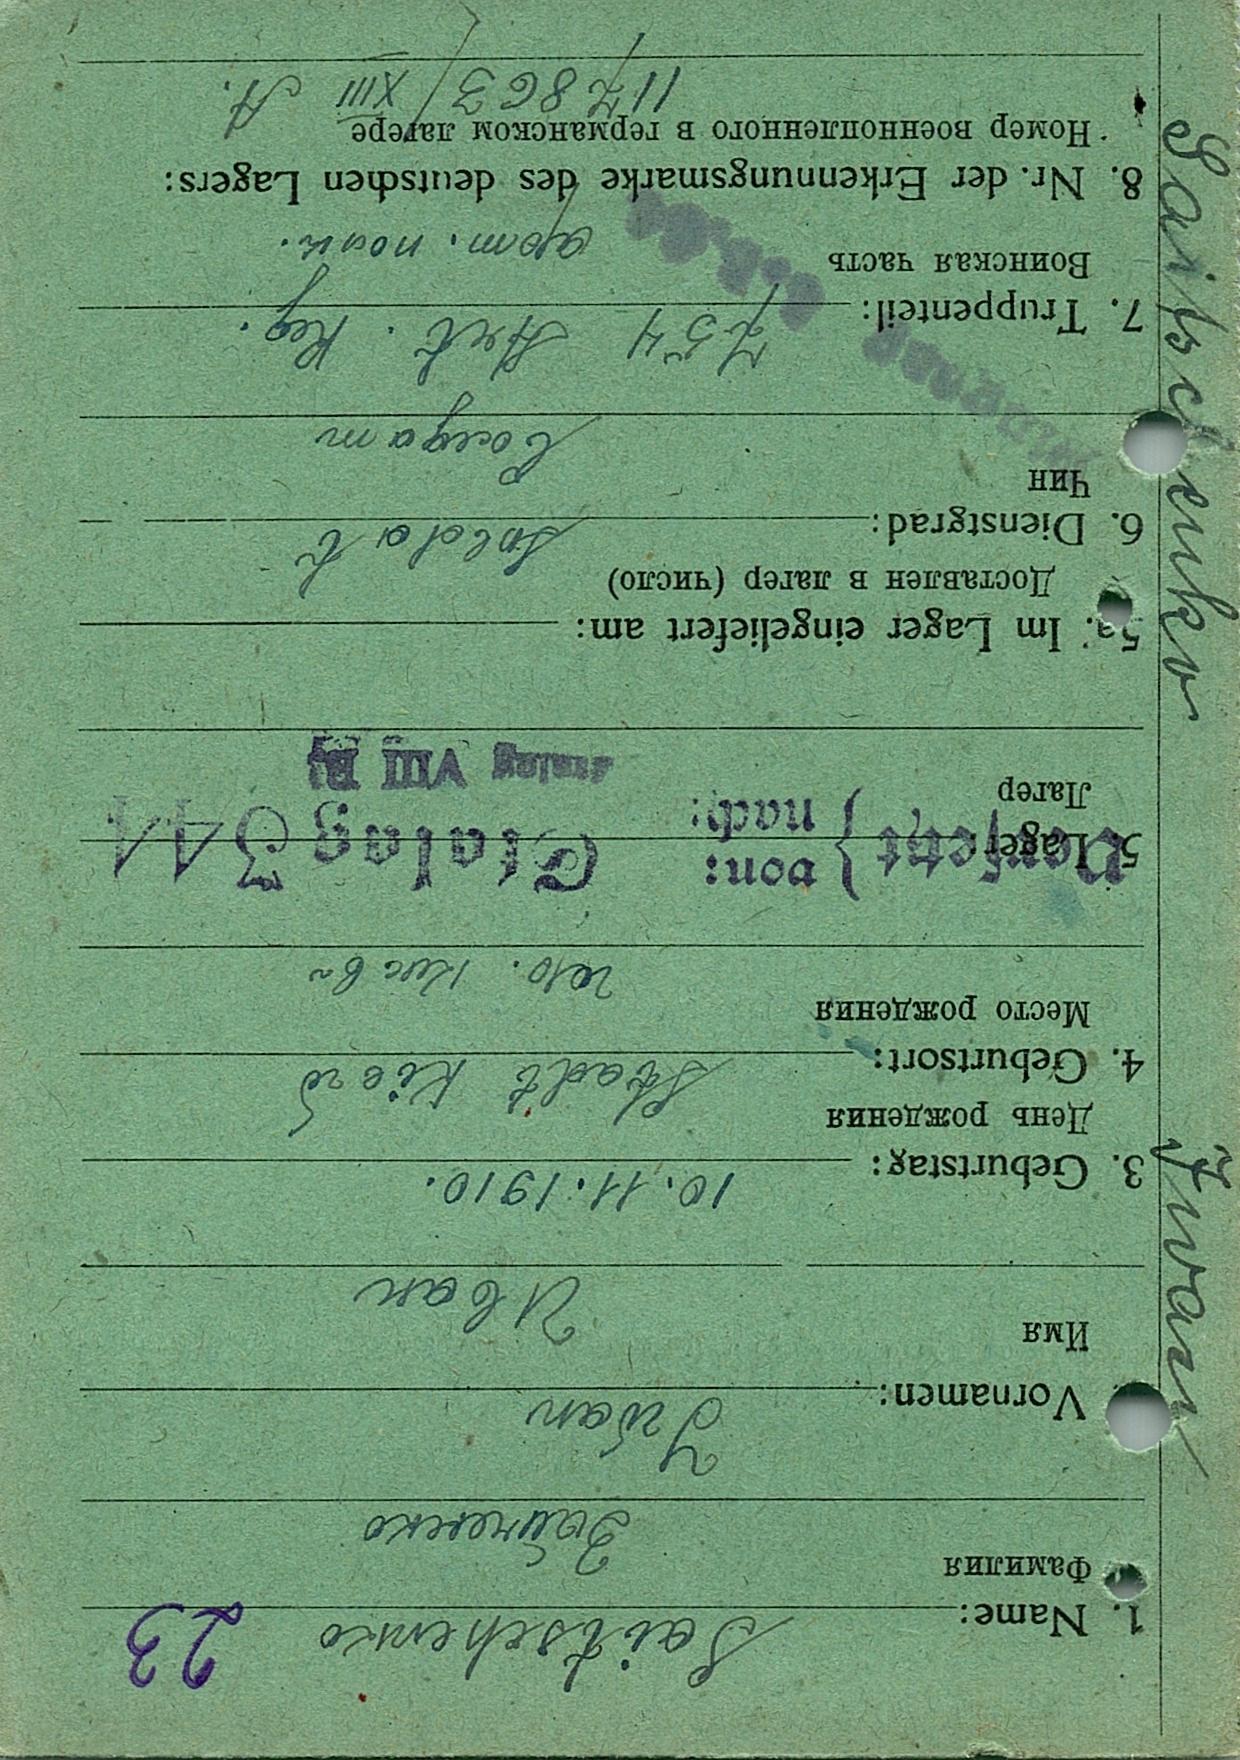 23
1. Name: Saitschenko
Фамилия Зайченко
Vornamen: Iwan
Имя Иван
3. Geburtstag: 10.11.1910.
День рождения
4. Geburtsort: Stadt Kiew
Место рождения гор. Киев
5 Lager
Versetzt } von: Stalag 344
nach:
Лагер
Stalag VIII B
5a. Im Lager eingeliefert am:
Доставлен в лагер (число)
6. Dienstgrad: Soldat
Чин Солдат
7. Truppenteil: 754 Art. Reg.
Воинская часть арт. полк.
8. Nr. der Erkennungsmarke des deutschen Lagers:
Номер военнопленного в германском лагере
117863/XIII A.
Saitschenko Iwan